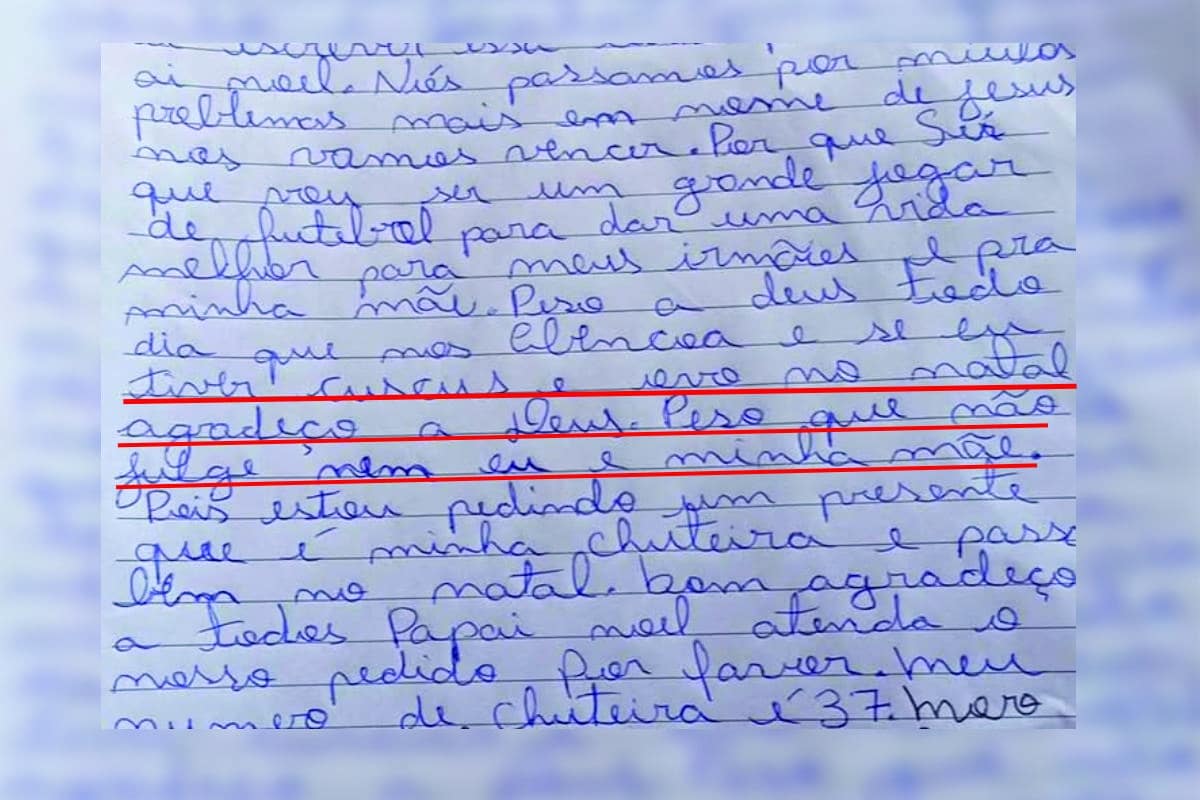 escrever essa
ai noel. Niós passamos por muitos
problemas mais em nome de jesus
nos vamos vencer. Por que Sei
que vou ser um grande jogar
de futebol para dar uma vida
melhor para meus irmães e pra
minha mãe. Peso a deus todo
dia que nos bencoa e se eu
tiver cuscus e ovo no natal
agradeço a Deus. Peso que não
julge nem eu e minha mãe.
Pois estou pedindo um presente
que é minha chuteira e pass
bem no natal. bom agradeço
a todos Papai noel atenda o
nosso pedido Por favor. meu
numero de chuteira é 37. moro